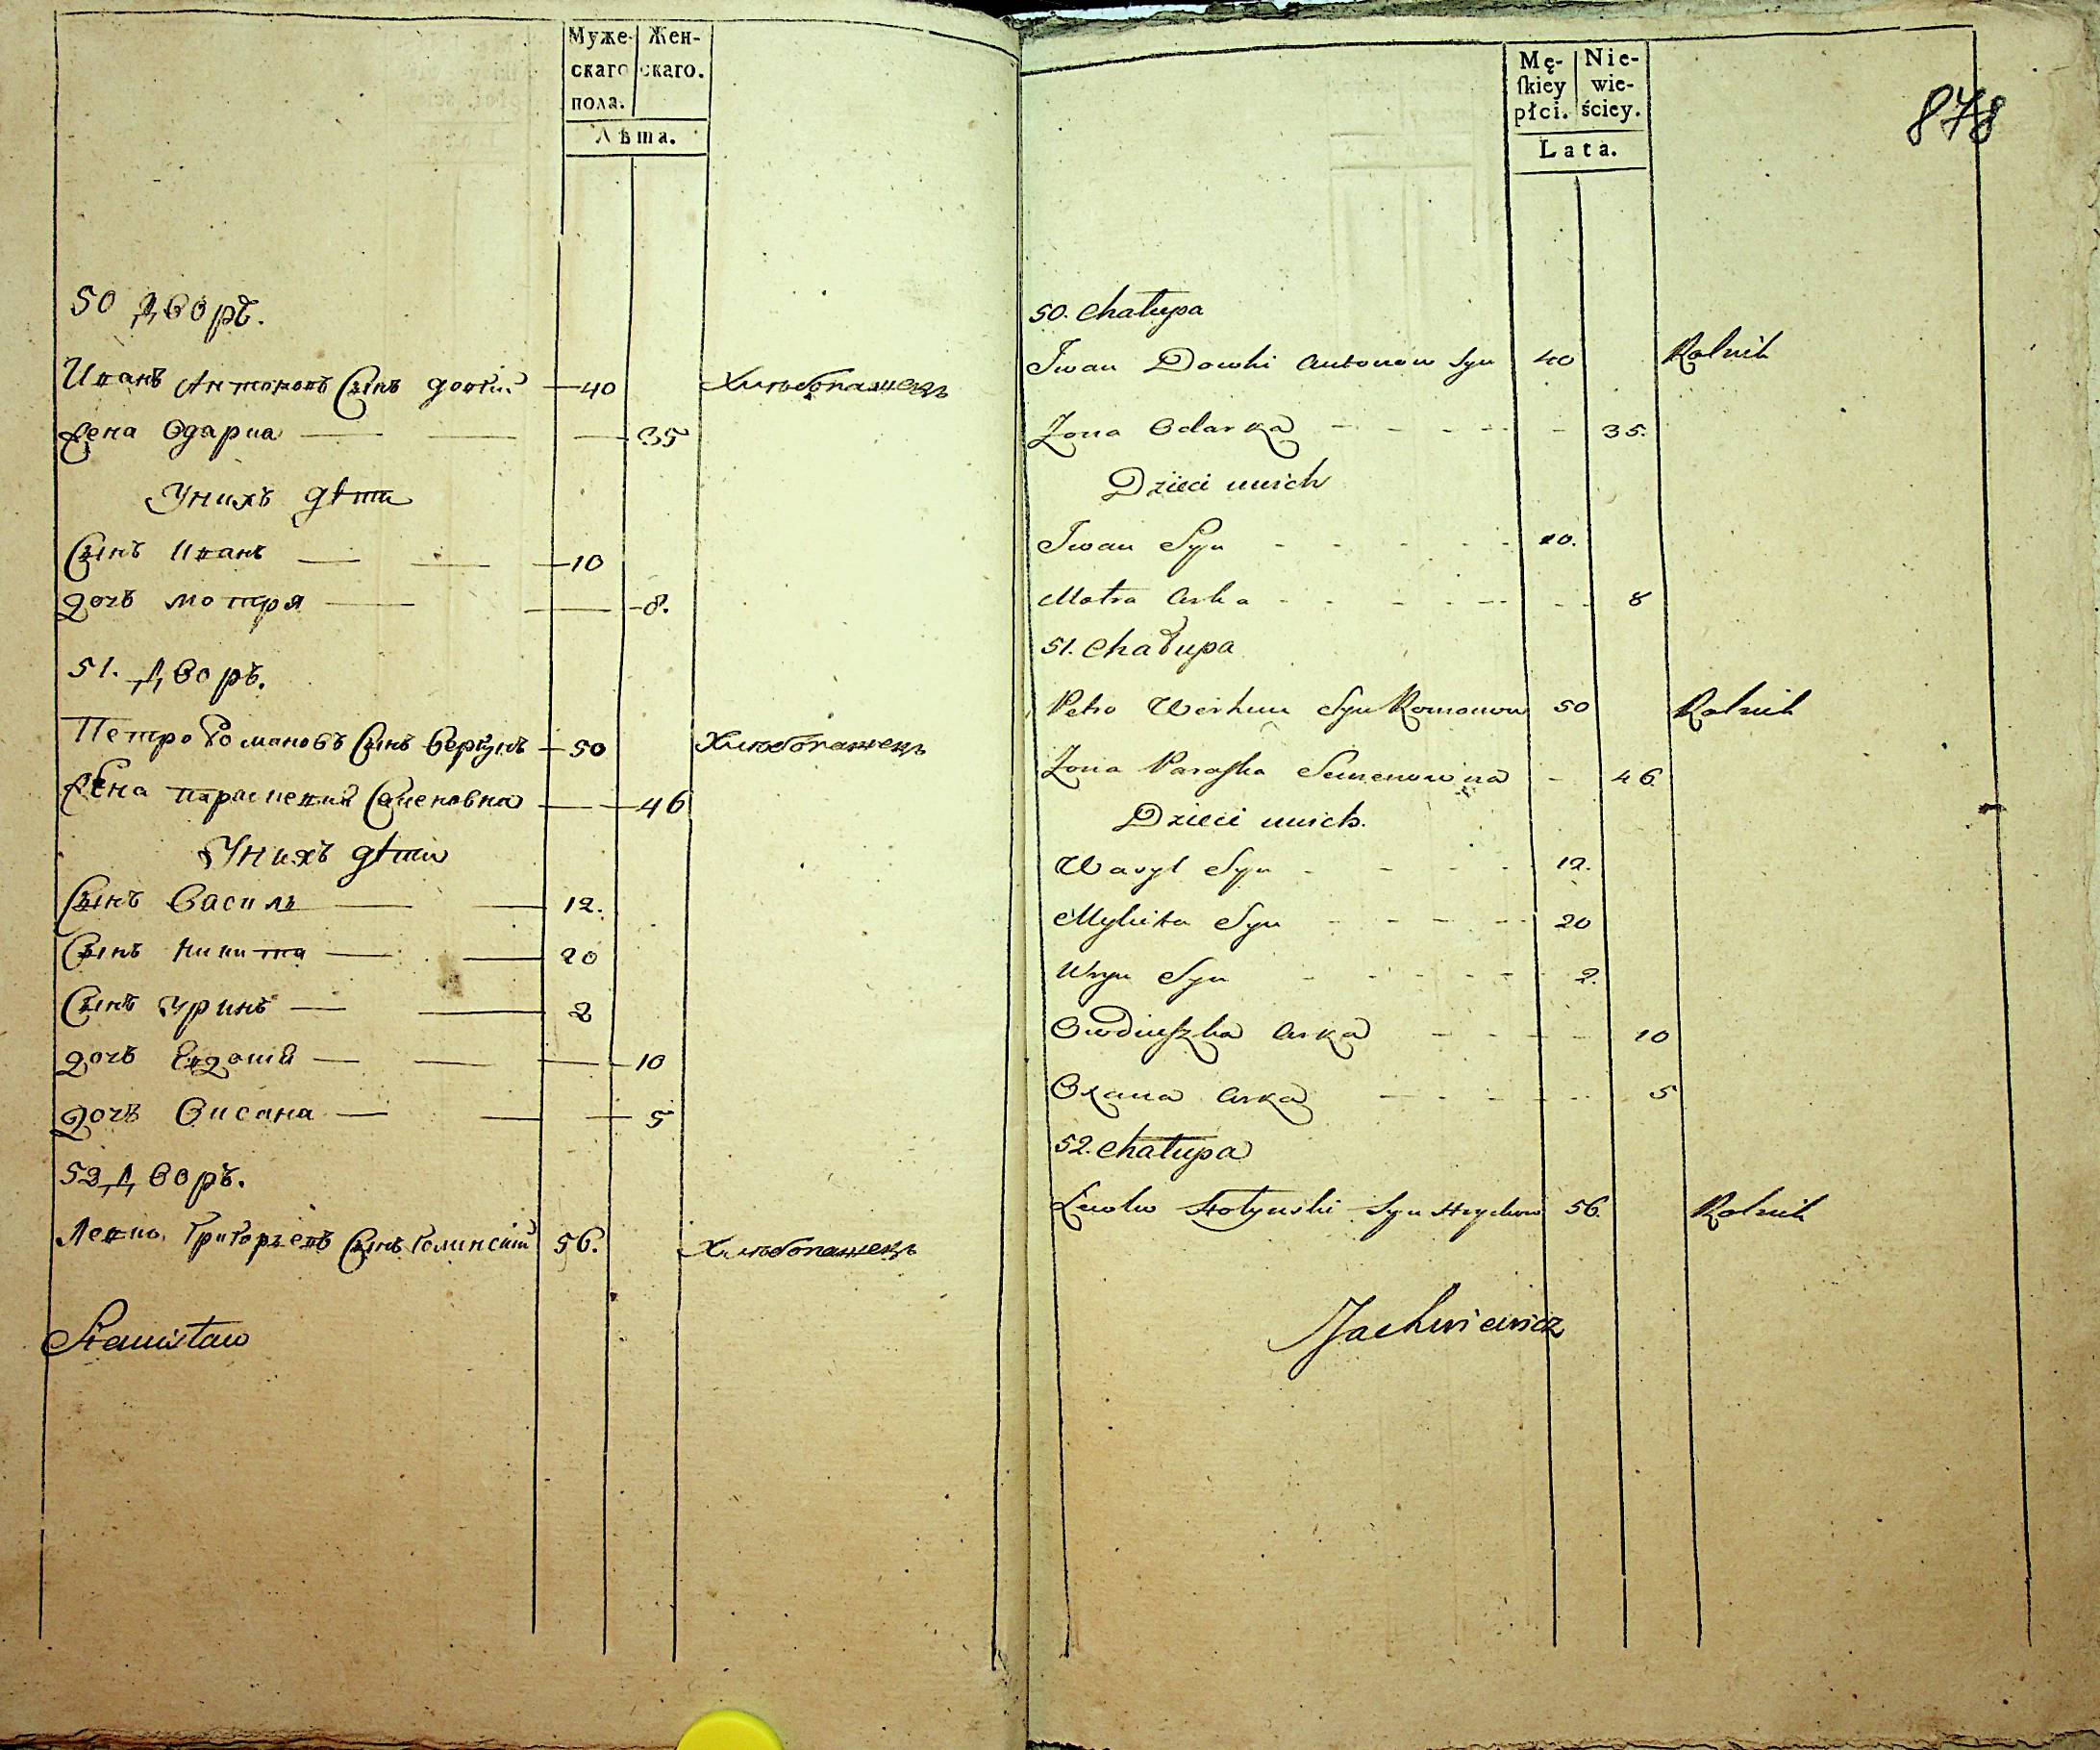 Муже-
скаго
пола.
Жен-
скаго.
Лѣта.
50 Дворъ.
Иванъ Антоновъ Сынъ довгий 40 Хлѣбопашецъ
Жена Одарка 35
У нихъ дѣти
Сынъ Иванъ 10
дочъ мотря 8.
51. Дворъ.
Петро Романовъ Сынъ Вергунъ 50 Хлѣбопашецъ
Жена Семеновна 46
У нихъ дѣти
Сынъ Василь 12.
Сынъ Никита 20
Сынъ Уринъ 2
дочъ 10
дочъ Оксана 5
52 Дворъ.
Левко Григорьевъ Сынъ 56. Хлѣбопашецъ
Stanisław
Mę-
ſkiey
płci.
Nie-
wie-
ściey.
Lata.
878
50. Chałupa
Iwan Dowhi Antonow Syn 40 Rolnik
Żona Odarka 35.
Dzieci unich
Iwan Syn 10.
Motra Curka 8
51. Chałupa
Petro Werhun Syn Romanow 50 Rolnik
Żona Paraſka Semenowna 46.
Dzieci unich.
Wasyl Syn 12.
Mykita Syn 20
Uryn Syn 2.
Owdiuſzka Curka 10
Oxana Curka 5
52. Chałupa
Lewko Syn Hrychow 56. Rolnik
Jachwiewicz